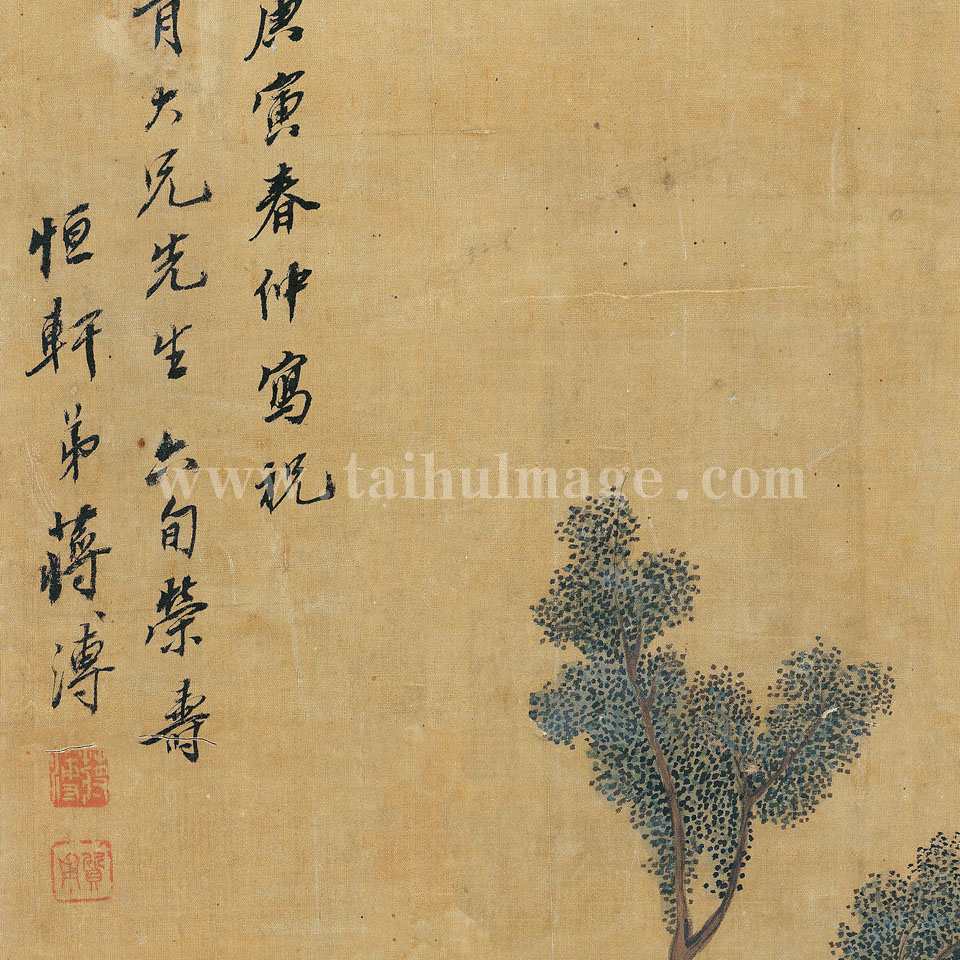 庚寅春仲寫祝
大兄先生六旬榮壽
恒軒弟蔣溥
蔣溥
質甫
www.taihuImage.com